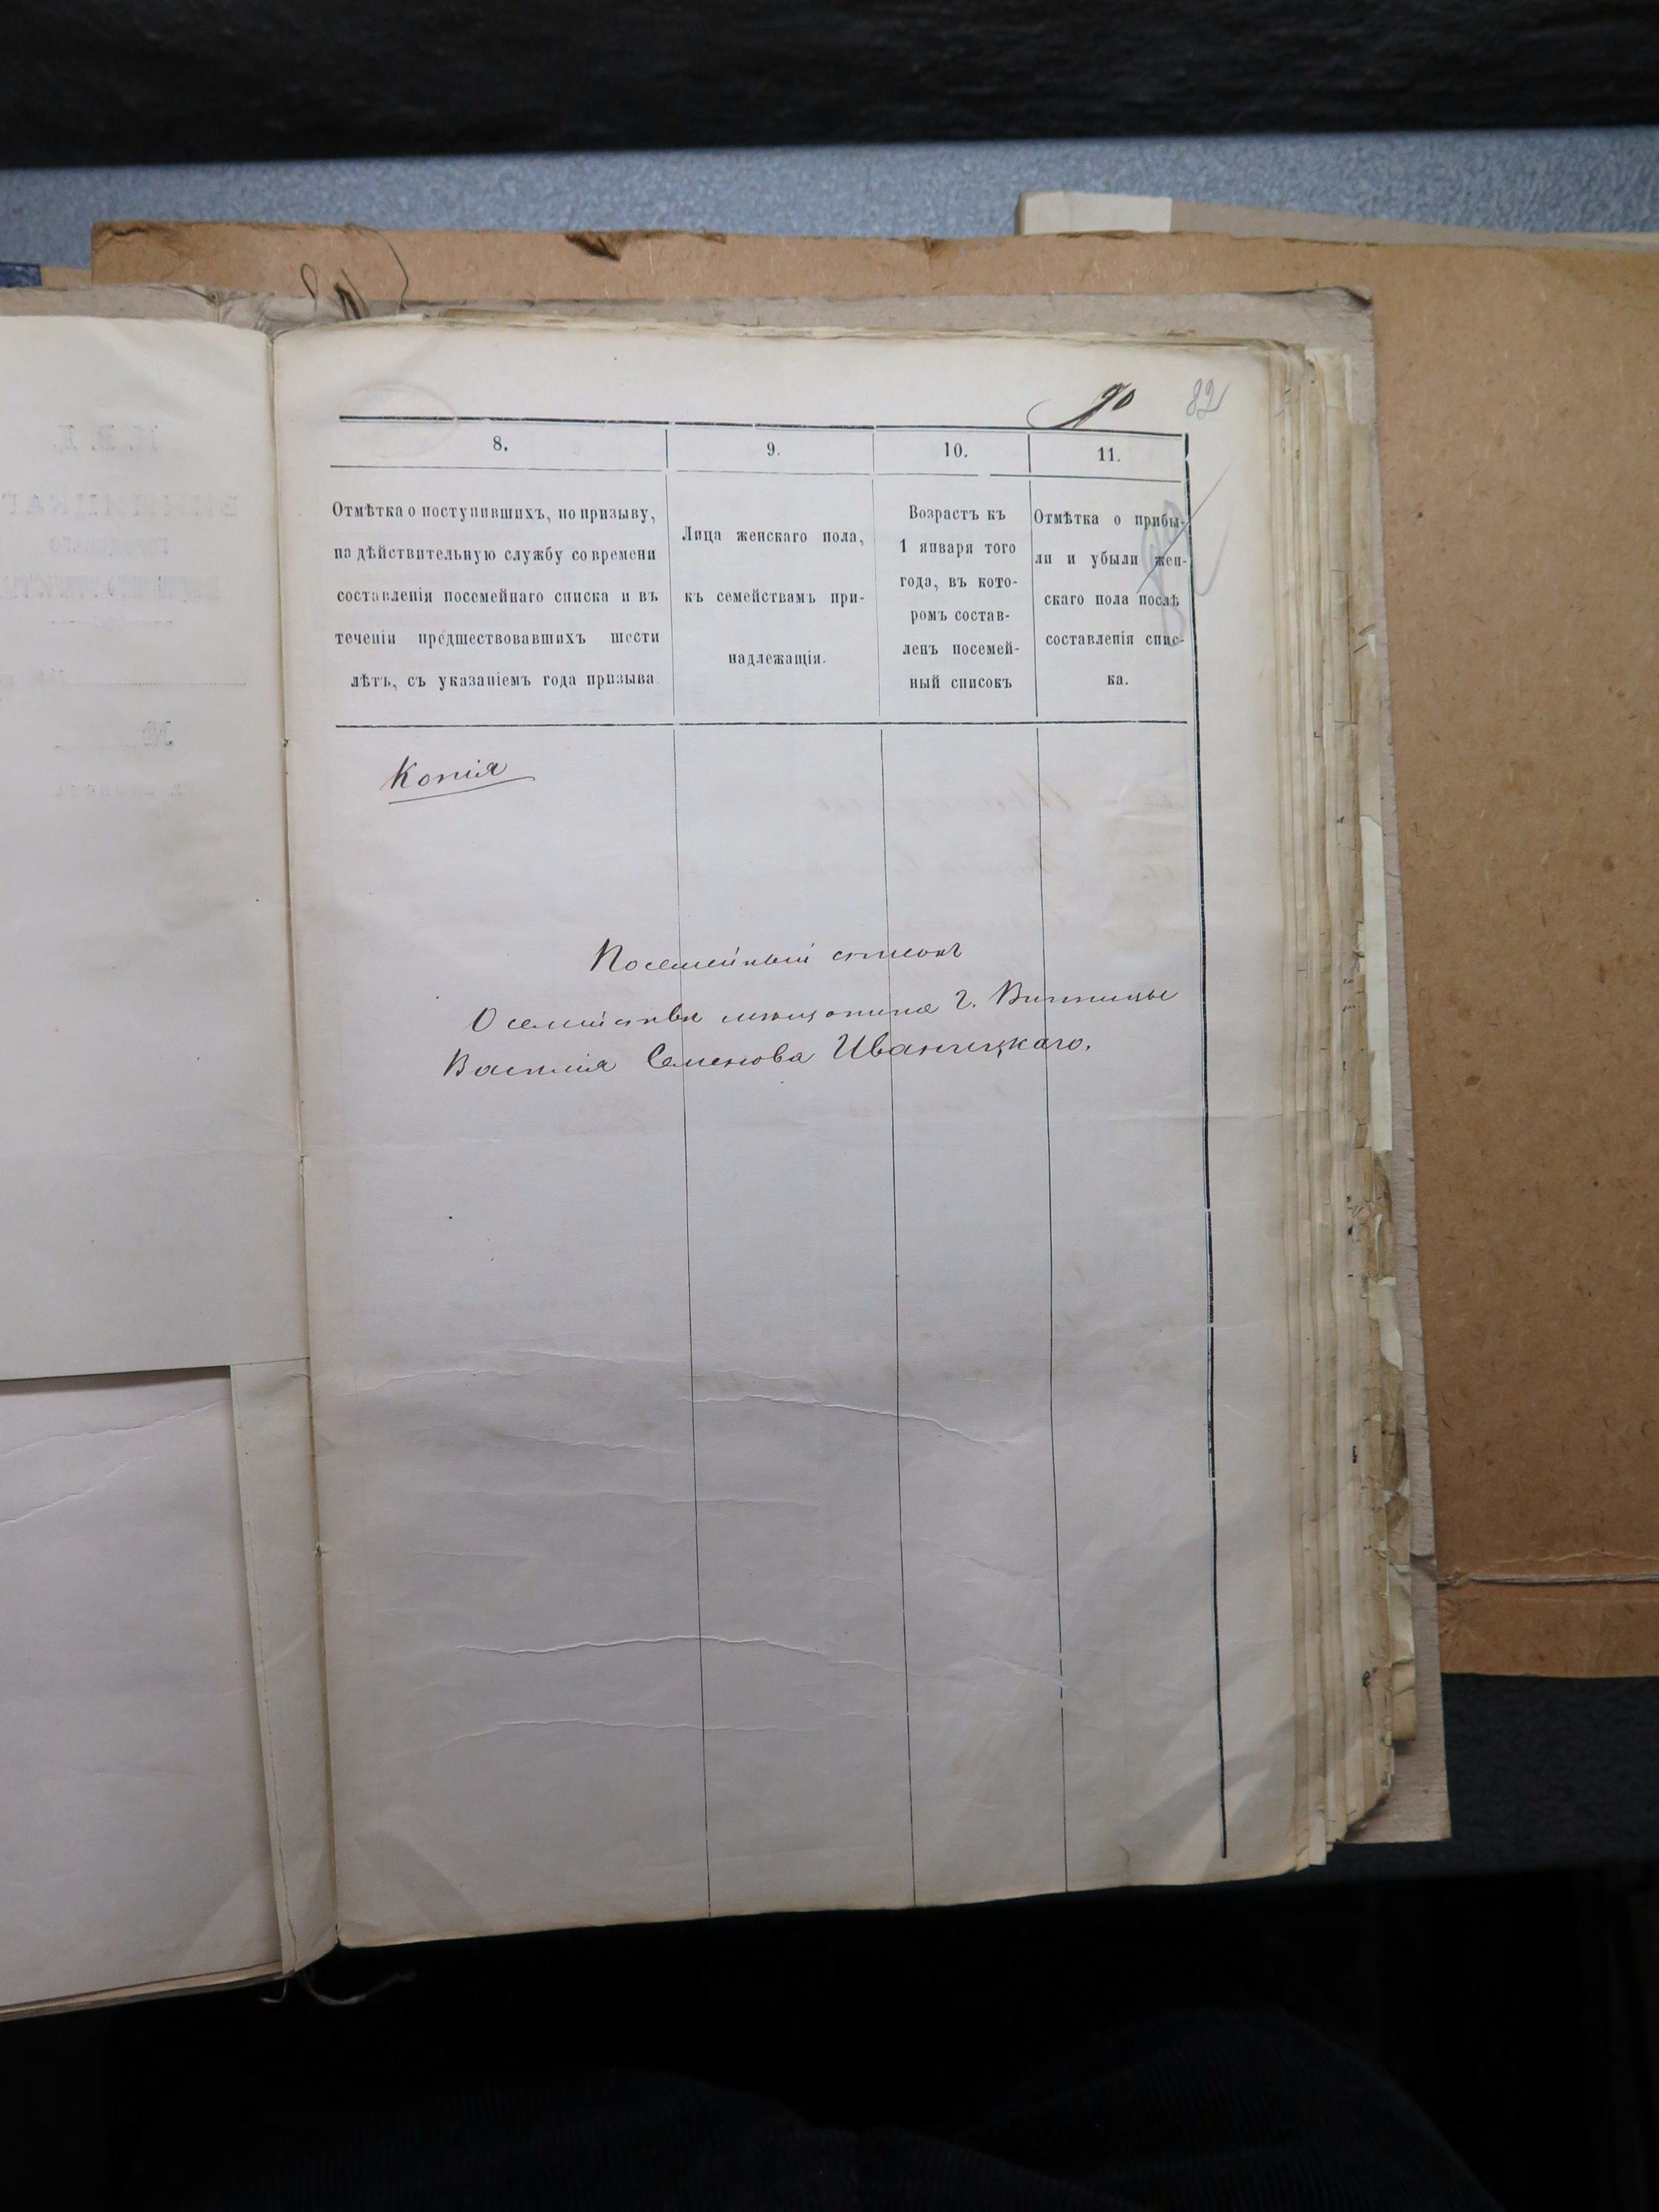 90 82
8. 9. 10. 11.
Отмѣтка о поступившихъ, по призыву,
на дѣйствительную службу со времени
составленія посемейнаго списка и въ
теченіи предшествовавшихъ шести
лѣтъ, съ указаніемъ года призыва
Лица женскаго пола,
къ семействамъ при-
надлежащія.
Возрастъ къ
1 января того
года, въ кото-
ромъ состав-
ленъ посемей-
ный списокъ
Отмѣтка о прибы-
ли и убыли жен-
скаго пола послѣ
составленія спис-
ка.
Копія
Посемейный списокъ
О семействѣ мѣщанина г. Винницы
Василія Семенова Иваницкаго.